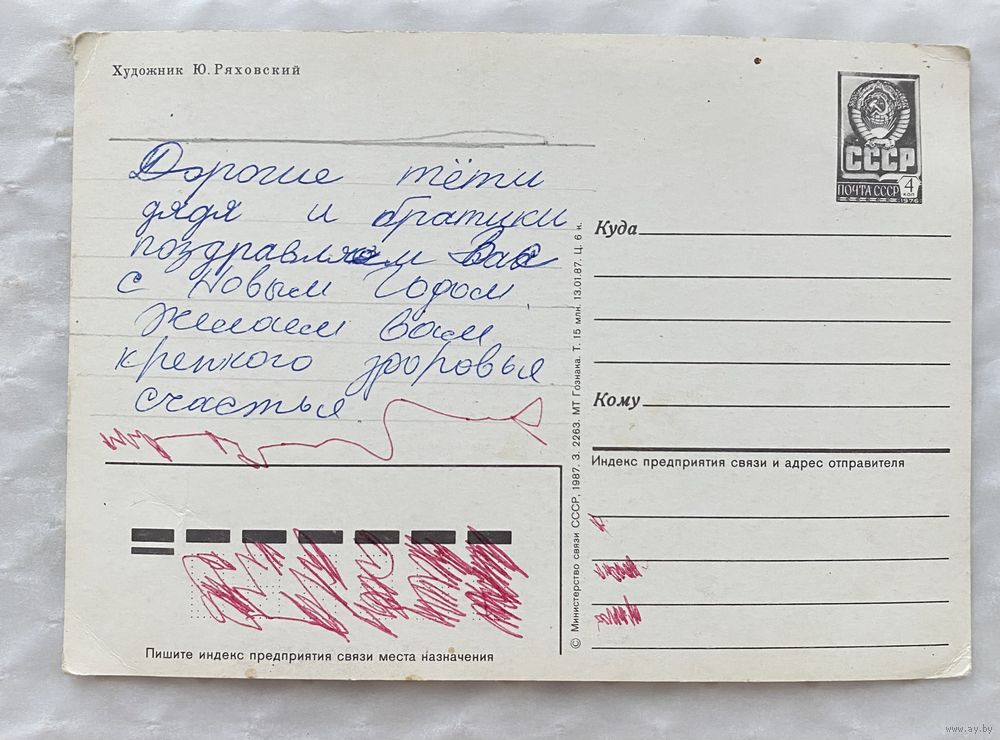 Художник Ю. Ряховский
Дорогие тёти
дядя и братики
поздравляем Вас
с Новым Годом
желаем вам
крепкого здоровья
счастья
Пишите индекс предприятия связи места назначения
© Министерство связи СССР, 1987. З. 2263. МТ Гознака. Т. 15 млн. 13.01.87. Ц. 6 к.
СССР
ПОЧТА СССР 4 КОП
1976
Куда
Кому
Индекс предприятия связи и адрес отправителя
www.ay.by